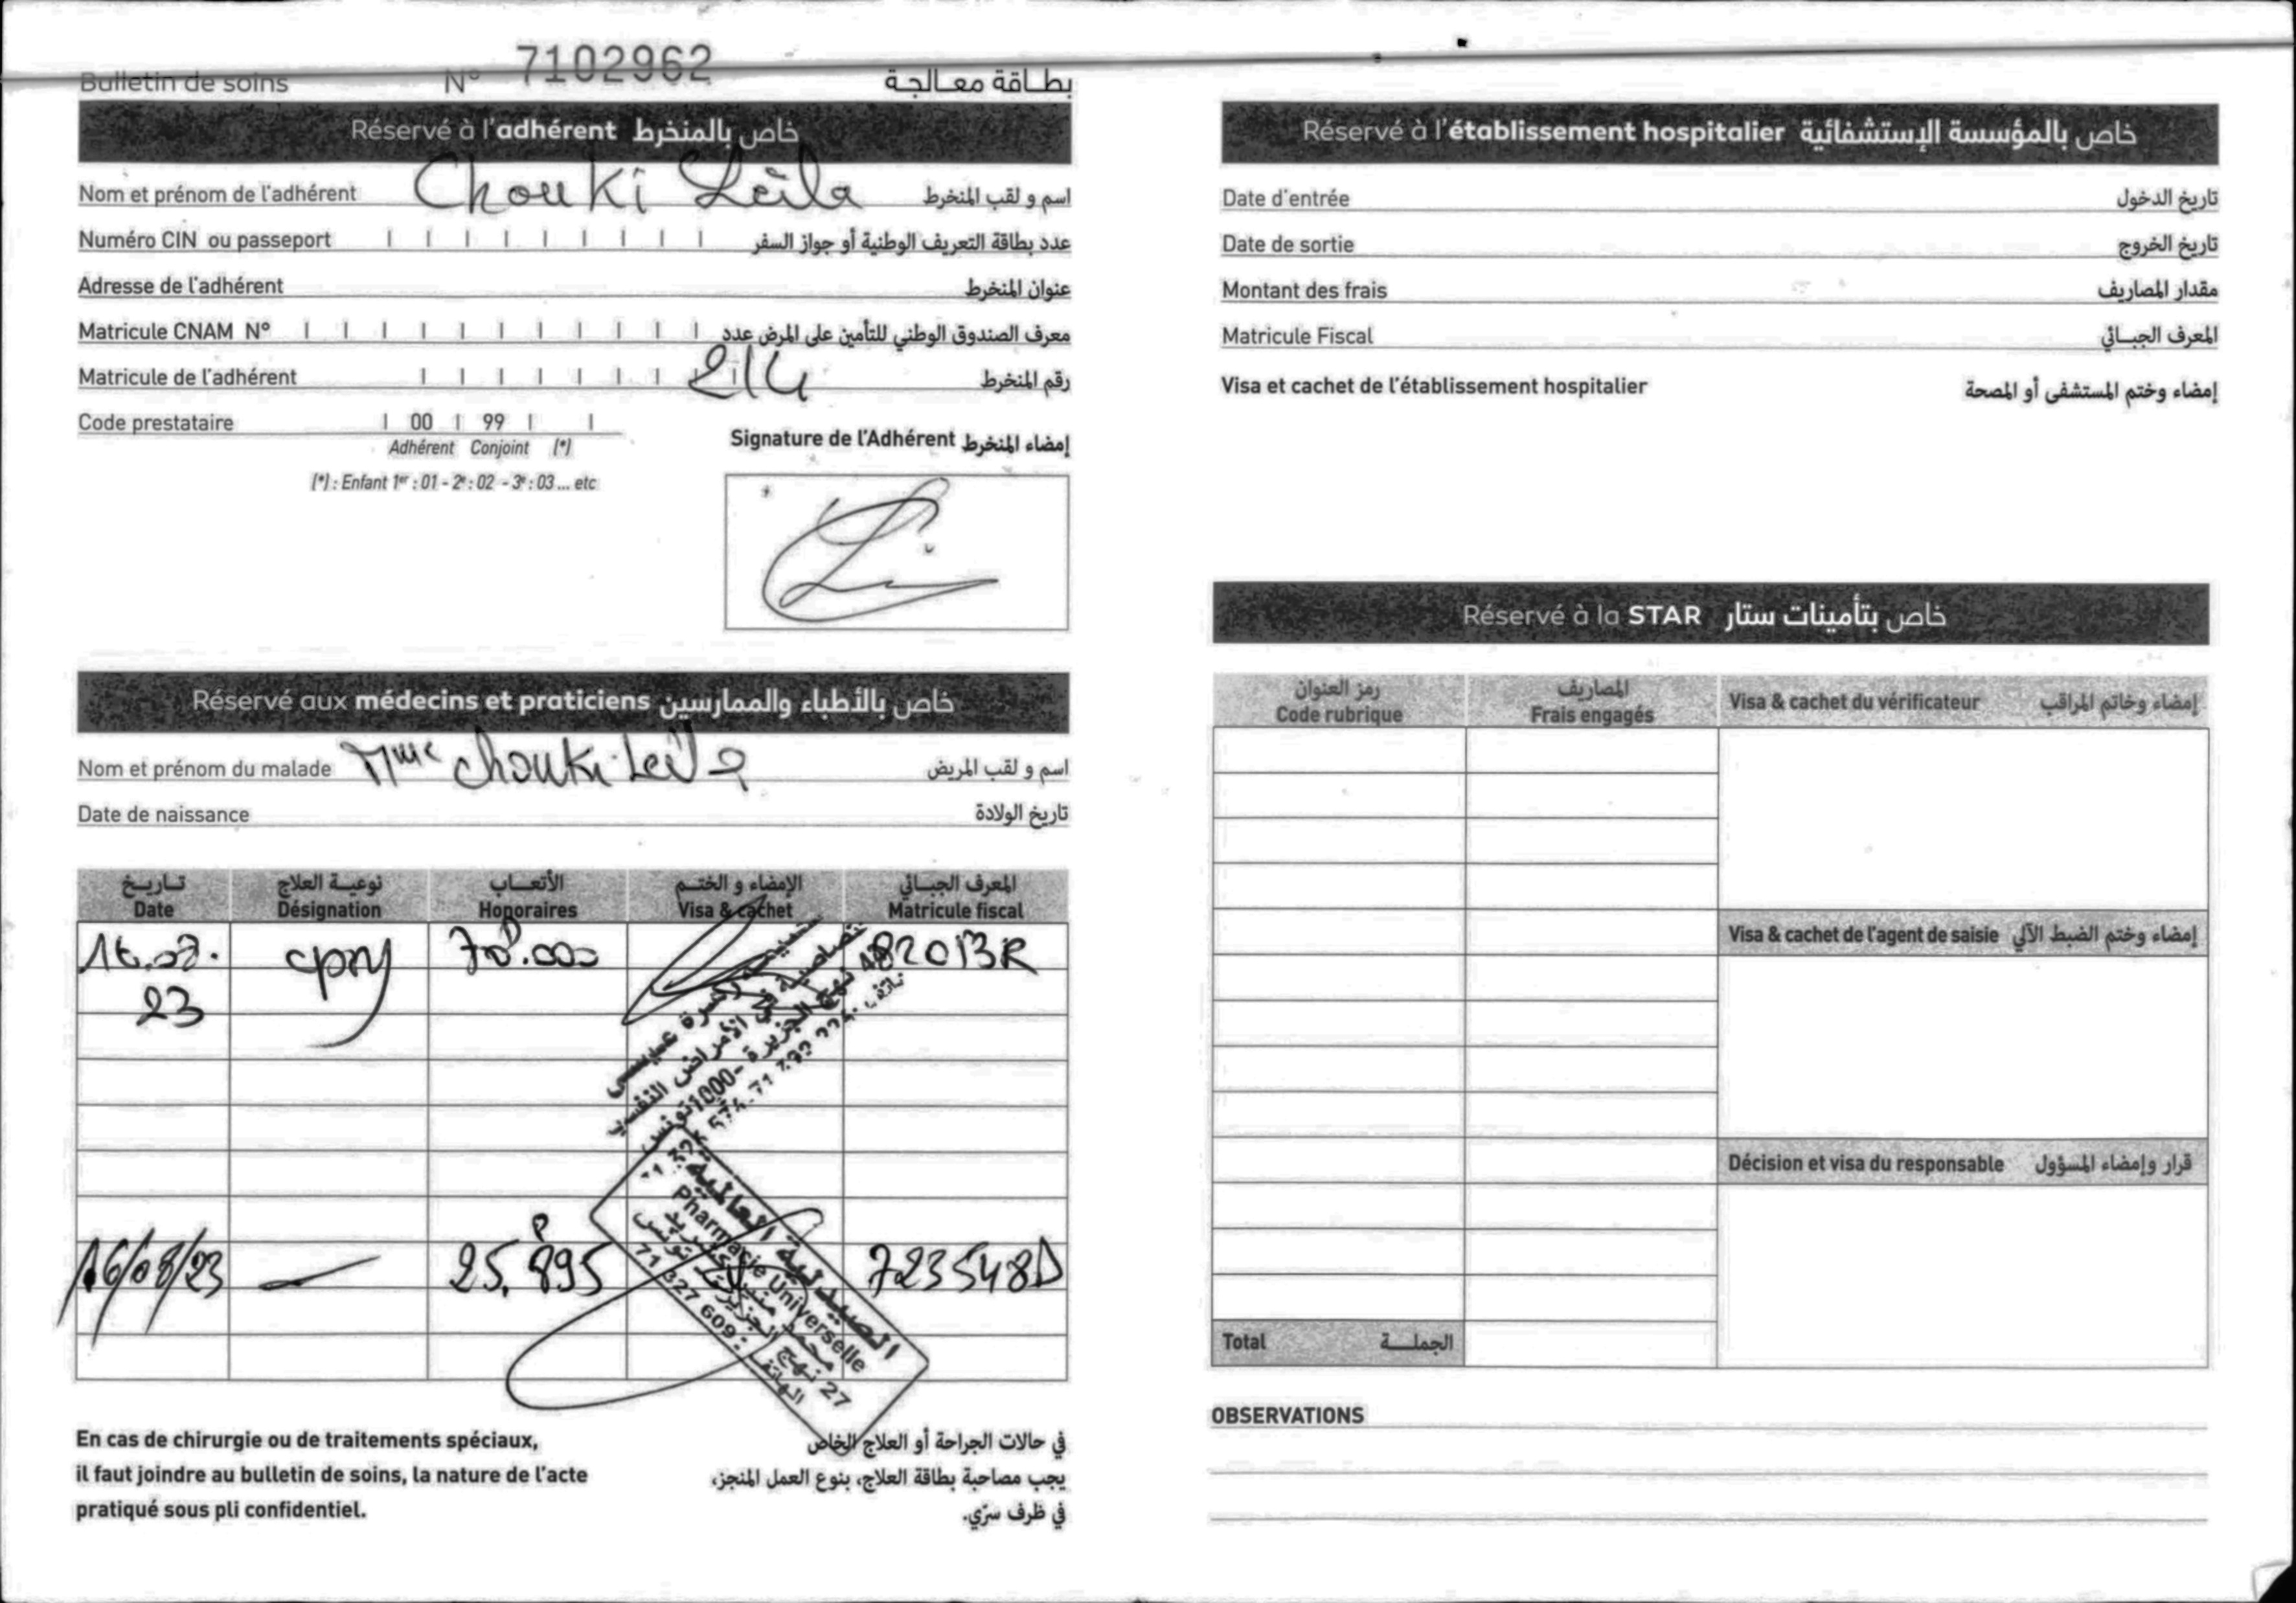 Bulletin de soins N° 7102962 بطاقة معالجة
Réservé à l'adhérent خاص بالمنخرط
Nom et prénom de l'adhérent Chouki Leila اسم و لقب المنخرط
Numéro CIN ou passeport عدد بطاقة التعريف الوطنية أو جواز السفر
Adresse de l'adhérent عنوان المنخرط
Matricule CNAM N° معرف الصندوق الوطني للتأمين على المرض عدد
Matricule de l'adhérent 214 رقم المنخرط
Code prestataire 00 99
Adhérent Conjoint (*)
(*) : Enfant 1er : 01 - 2e : 02 - 3e : 03 ... etc
Signature de l'Adhérent إمضاء المنخرط
Réservé aux médecins et praticiens خاص بالأطباء والممارسين
Nom et prénom du malade Mme Chouki Leila اسم و لقب المريض
Date de naissance تاريخ الولادة
تاريخ نوعية العلاج الأتعاب الإمضاء و الختم المعرف الجبائي
Date Désignation Honoraires Visa & cachet Matricule fiscal
16.08. cpsy 70D.000 482013R
23
في الأمراض
48 نهج الجزيرة -1000 تونس
الصيدلية العالمية
Pharmacie Universelle
27 نهج الجزيرة تونس
الهاتف : 71 327 609
16/08/23 — 25.895 723548D
En cas de chirurgie ou de traitements spéciaux,
il faut joindre au bulletin de soins, la nature de l'acte
pratiqué sous pli confidentiel.
في حالات الجراحة أو العلاج الخاص
يجب مصاحبة بطاقة العلاج، بنوع العمل المنجز،
في ظرف سرّي.
Réservé à l'établissement hospitalier خاص بالمؤسسة الإستشفائية
Date d'entrée تاريخ الدخول
Date de sortie تاريخ الخروج
Montant des frais مقدار المصاريف
Matricule Fiscal المعرف الجبائي
Visa et cachet de l'établissement hospitalier إمضاء وختم المستشفى أو المصحة
Réservé à la STAR خاص بتأمينات ستار
رمز العنوان المصاريف
Code rubrique Frais engagés
Visa & cachet du vérificateur إمضاء وخاتم المراقب
Visa & cachet de l'agent de saisie إمضاء وختم الضبط الآلي
Décision et visa du responsable قرار وإمضاء المسؤول
Total الجملة
OBSERVATIONS